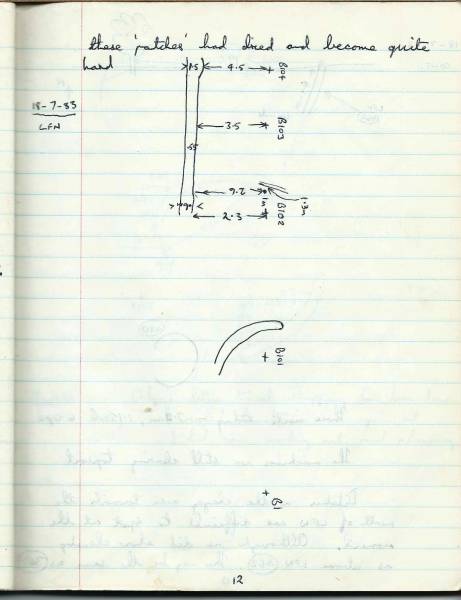 these 'patches' had dried and become quite
hard
18-7-83
LFN
1.5
4.5
B104
3.5
B103
.55
1m
B102
1.3m
2.3
B101
B1
12